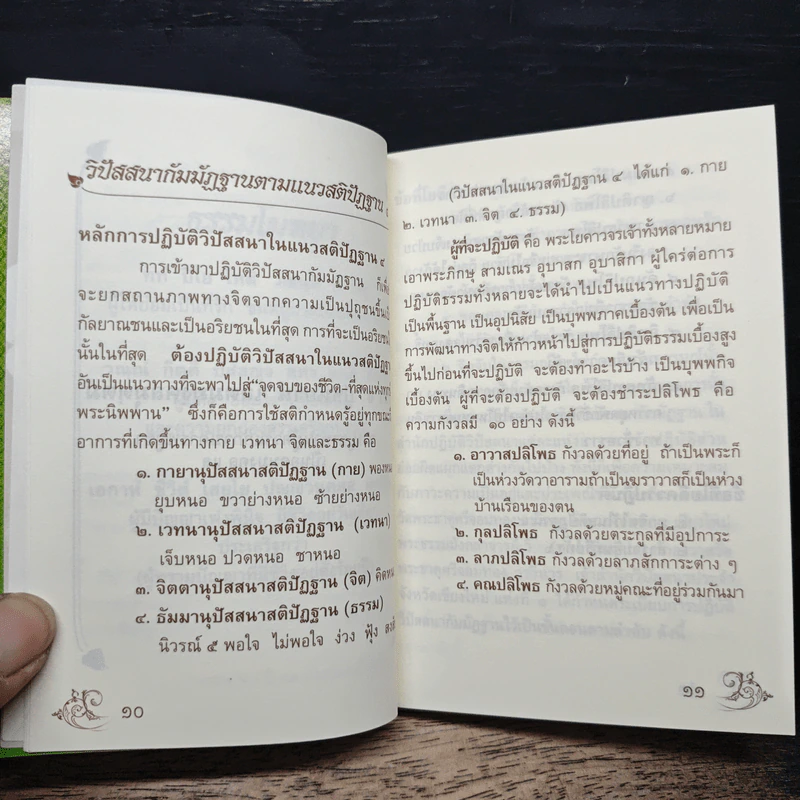 วิปัสสนากัมมัฏฐานตามแนวสติปัฏฐาน ๔
หลักการปฏิบัติวิปัสสนาในแนวสติปัฏฐาน ๔
การเข้ามาปฏิบัติวิปัสสนากัมมัฏฐาน ก็เพื่อ
จะยกสถานภาพทางจิตจากความเป็นปุถุชนขึ้น
กัลยาณชนและเป็นอริยชนในที่สุด การที่จะเป็นอริยชน
นั้นในที่สุด ต้องปฏิบัติวิปัสสนาในแนวสติปัฏฐาน
อันเป็นแนวทางที่จะพาไปสู่“จุดจบของชีวิต-ที่สุดแห่งทุกข์
พระนิพพาน” ซึ่งก็คือการใช้สติกำหนดรู้อยู่ทุกขณะ
อาการที่เกิดขึ้นทางกาย เวทนา จิตและธรรม คือ
๑. กายานุปัสสนาสติปัฏฐาน (กาย) พองหนอ
ยุบหนอ ขวาย่างหนอ ซ้ายย่างหนอ
๒. เวทนานุปัสสนาสติปัฏฐาน (เวทนา)
เจ็บหนอ ปวดหนอ ชาหนอ
๓. จิตตานุปัสสนาสติปัฏฐาน (จิต) คิดหนอ
๔. ธัมมานุปัสสนาสติปัฏฐาน (ธรรม)
นิวรณ์ ๕ พอใจ ไม่พอใจ ง่วง ฟุ้ง สงสัย
๑๐
(วิปัสสนาในแนวสติปัฏฐาน ๔ ได้แก่ ๑. กาย
๒. เวทนา ๓. จิต ๔. ธรรม)
ผู้ที่จะปฏิบัติ คือ พระโยคาวจรเจ้าทั้งหลายหมาย
เอาพระภิกษุ สามเณร อุบาสก อุบาสิกา ผู้ใคร่ต่อการ
ปฏิบัติธรรมทั้งหลายจะได้นำไปเป็นแนวทางปฏิบัติ
เป็นพื้นฐาน เป็นอุปนิสัย เป็นบุพพภาคเบื้องต้น เพื่อเป็น
การพัฒนาทางจิตให้ก้าวหน้าไปสู่การปฏิบัติธรรมเบื้องสูง
ขึ้นไปก่อนที่จะปฏิบัติ จะต้องทำอะไรบ้าง เป็นบุพพกิจ
เบื้องต้น ผู้ที่จะต้องปฏิบัติ จะต้องชำระปลิโพธ คือ
ความกังวลมี ๑๐ อย่าง ดังนี้
๑. อาวาสปลิโพธ กังวลด้วยที่อยู่ ถ้าเป็นพระก็
เป็นห่วงวัดวาอารามถ้าเป็นฆราวาสก็เป็นห่วง
บ้านเรือนของตน
๒. กุลปลิโพธ กังวลด้วยตระกูลที่มีอุปการะ
๓. ลาภปลิโพธ กังวลด้วยลาภสักการะต่าง ๆ
๔. คณปลิโพธ กังวลด้วยหมู่คณะที่อยู่ร่วมกันมา
๑๑